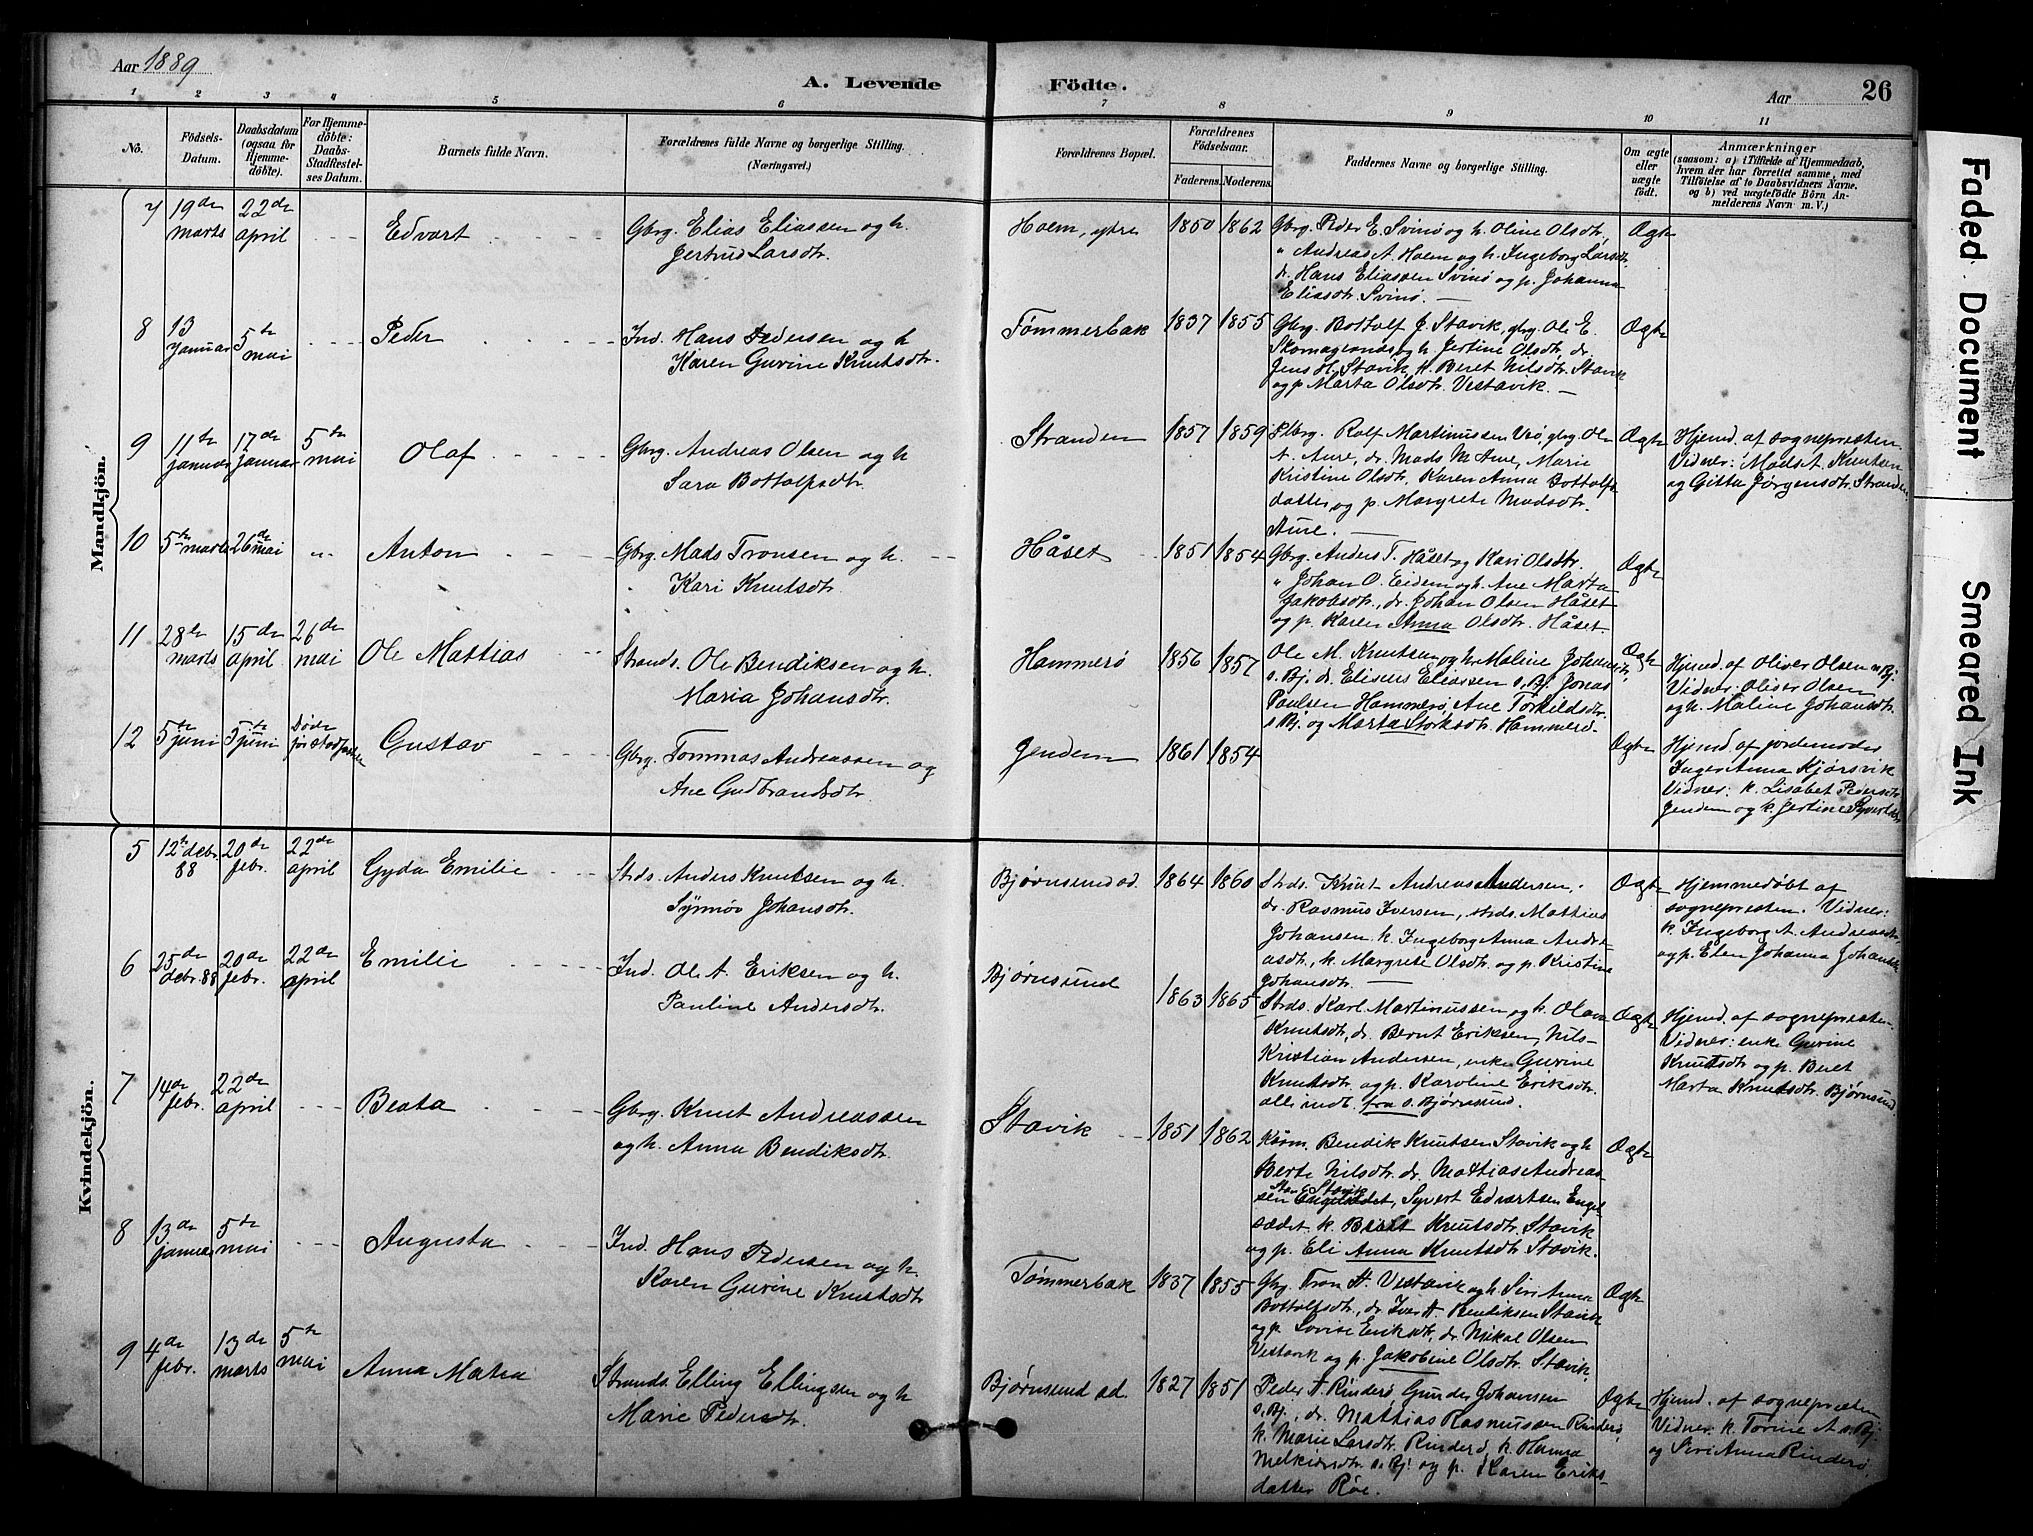 Aar 1889
A. Levende
Födte.
Aar
26
1 2 3 4 5 6 7 8 9 10 11
No.
Födsels-
Datum.
Daabsdatum
(ogsaa for
Hjemme-
döbte).
For Hjemme-
döbte:
Daabs-
Stadfæstel-
ses Datum.
Barnets fulde Navn.
Forældrenes fulde Navne og borgerlige Stilling.
(Næringsvei.)
Forældrenes Bopæl.
Forældrenes
Födselsaar.
Faderens. Moderens.
Faddernes Navne og borgerlige Stilling.
Om ægte
eller
uægte
født.
Anmærkninger
(saasom: a) i Tilfælde af Hjemmedaab,
hvem der har forrettet samme, med
Tilföielse af to Daabsvidners Navne,
og b) ved uægtefödte Börn An-
melderens Navn m. V.)
Mandkjön.
7 19de marts 22de april Edvart Gbrg. Elias Eliassen og h.
Gertrud Larsdtr.
Holm, ytre 1850 1862 Ægte
Gbrg. Peder E. Svinø og h. Oline Olsdtr,
" Andreas A. Holm og h. Ingeborg Larsdtr,
d. Hans Eliassen Svinø og p. Johanna
Eliasdtr. Svinø. —
8 13 januar 5te mai Peder Ind. Hans Pedersen og h
Karen Guvine Knutsdtr.
Tømmerbak 1837 1855 Ægte
Gbrg. Bottolf J. Stavik, gbrg. Ole E.
og h. Jertine Olsdtr, dr.
Jens H. Stavik k. Beret Nilsdtr. Stavik
og p. Marta Olsdtr. Vestavik. —
9 11te januar 17de januar 5te mai Olaf Gbrg. Andreas Olsen og h
Sara Bottolfsdtr.
Stranden 1857 1859 Ægte
Rolf Martinussen gbrg. Ole
A. Aure, dr. Mads M Aure, Marie
Kristine Olsdtr, Karen Anna Bottolfs
datter og p. Margrete Madsdtr.
Aure. —
Hjemd. af sognepresten
Vidner: Mads A. Knutsen
og Gitta Jørgensdtr. Stranden
10 5te marts 26de mai " Anton Gbrg. Mads Tronsen og h.
Kari Knutsdtr.
Håset 1851 1854 Ægte
Gbrg. Anders T. Håset og Kari Olsdtr.
" Johan O. Eidem og h. Ane Marta
Jakobsdtr., dr. Johan Olsen Håset
og p. Karen Anna Olsdtr. Håset.
11 28de marts 15de april 26de mai Ole Mattias Strands. Ole Bendiksen og h.
Maria Johansdtr.
Hammerø 1856 1857 Ægte
Ole M. Knutsen og h. Maline Johansdtr,
s. Bj. dr. Elinus Eliassen s. Bj. Jonas
Paulsen Hammerø, Ane Torkildsdtr.
s Bj. og Marta Storksdtr. Hammerø.
Hjemd. af Oliver Olsen s Bj.
Vidner: Oliver Olsen
og h. Maline Johansdtr.
12 5te juni 5te juni Døde Gustav Gbrg. Tommas Andreassen og
Ane Gudbrandsdtr.
Jendem 1861 1854 Ægte
Hjemd. af jordemoder
Inger Anna Kjørsvik
Vidner: k. Lisabet Pedersdtr
Jendem og k. Jertine Syvertsdtr
Kvindekjön.
5 12te debr. 88 20de febr. 22de april Gyda Emilie Strds. Anders Knutsen og h.
Synnøv Johansdtr.
Bjørnsund ad. 1864 1860 Ægte
Strds. Knut Andreas Andersen,
dr. Rasmus Iversen, strds. Mattias
Johansen k. Ingeborg Anna Andre-
asdtr., k. Margrete Olsdtr. og p. Kristine
Johansdtr. —
Hjemmedøbt af
sognepresten. Vidner:
k. Ingeborg A. Andreasdtr,
og p. Elen Johanna Johansdtr.
6 25de debr. 88 20de febr. 22de april Emilie Ind. Ole A. Eriksen og h.
Pauline Andersdtr.
Bjørnsund 1863 1865 Ægte
Strds. Karl Martinussen og h. Olava
Knutsdtr, dr. Bernt Eriksen, Nils
Kristian Andersen, enke Guvine
Knutsdtr. og p. Karoline Eriksdtr.
alle indt. fra s. Bjørnsund.
Hjemd. af sognepresten,
Vidner: enke Guvine
Knutsdtr og p. Beret
Marta Knutsdtr. Bjørnsund
7 14de febr. 22de april Beata Gbrg. Knut Andreassen
og h. Anna Bendiksdtr.
Stavik 1851 1862 Ægte
Kårm. Bendik Knutsen Stavik og h
Berte Nilsdtr. dr. Mattias Andreas-
sen Stavik, Syvert Edvartsen Engel-
sædet. k. Beret Knutsdtr. Stavik
og p. Eli Anna Knutsdtr. Stavik.
8 13de januar 5te mai Augusta Ind. Hans Pedersen og h.
Karen Guvine Knutsdtr
Tømmerbak 1837 1855 Ægte
Gbrg. Tron A. Vestavik og h Siri Anna
Bottolfsdtr., dr. Iver A Bendiksen Stavik
og p. Lovise Eriksdtr, dr. Mikal Olsen
Vestavik og p. Jakobine Olsdtr. Stavik,
9 4de febr. 13de marts 5te mai Anna Matea Strands. Elling Ellingsen og h
Marie Pedersdtr.
Bjørnsund ad. 1827 1851 Ægte
Peder A Rinderø Gunder Johansen
s. Bj., dr. Mattias Rasmussen Rinderø,
k. Marie Larsdtr. Rinderø, k. Hanna
Melkiorsdtr. s. Bj. og p. Karen Eriks-
datter Røe.
Hjemd. af sognepresten
Vidner. k. Torine A. s. Bj.
og Siri Anna Rinderø.
Faded Document
Smeared Ink